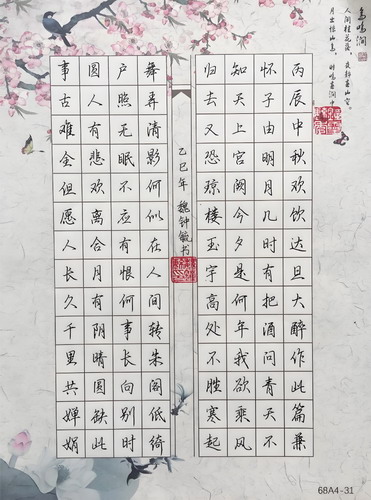 鸟鸣涧
人闲桂花落，夜静春山空。
月出惊山鸟，时鸣春涧中
丙辰中秋欢饮达旦大醉作此篇兼
怀子由明月几时有把酒问青天不
知天上宫阙今夕是何年我欲乘风
归去又恐琼楼玉宇高处不胜寒起
乙巳年 魏钟毓书
舞弄清影何似在人间转朱阁低绮
户照无眠不应有恨何事长向别时
圆人有悲欢离合月有阴晴圆缺此
事古难全但愿人长久千里共婵娟
68A4-31